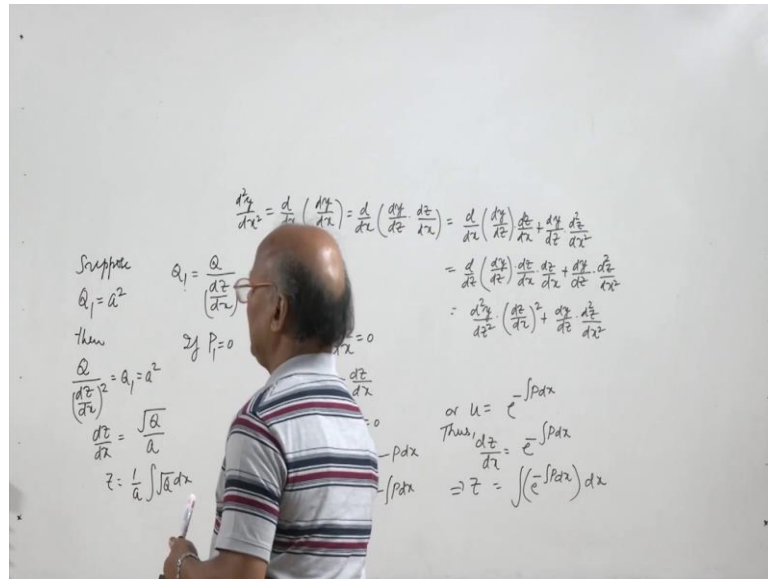 d²y/dx² = d/dx (dy/dx) = d/dx (dy/dz · dz/dx) = d/dx (dy/dz) · dz/dx + dy/dz · d²z/dx²
= d/dz (dy/dz) · dz/dx · dz/dx + dy/dz · d²z/dx²
= d²y/dz² · (dz/dx)² + dy/dz · d²z/dx²
Suppose
Q₁ = a²
Then
Q/(dz/dx)² = Q₁ = a²
dz/dx = √Q/a
z = 1/a ∫√Q dx
Q₁ = Q/(dz/dx)
If P₁ = 0
= 0
dz/dx
= 0
- Pdx
- ∫Pdx
or u = e^(-∫Pdx)
Thus, dz/dx = e^(-∫Pdx)
⇒ z = ∫(e^(-∫Pdx)) dx